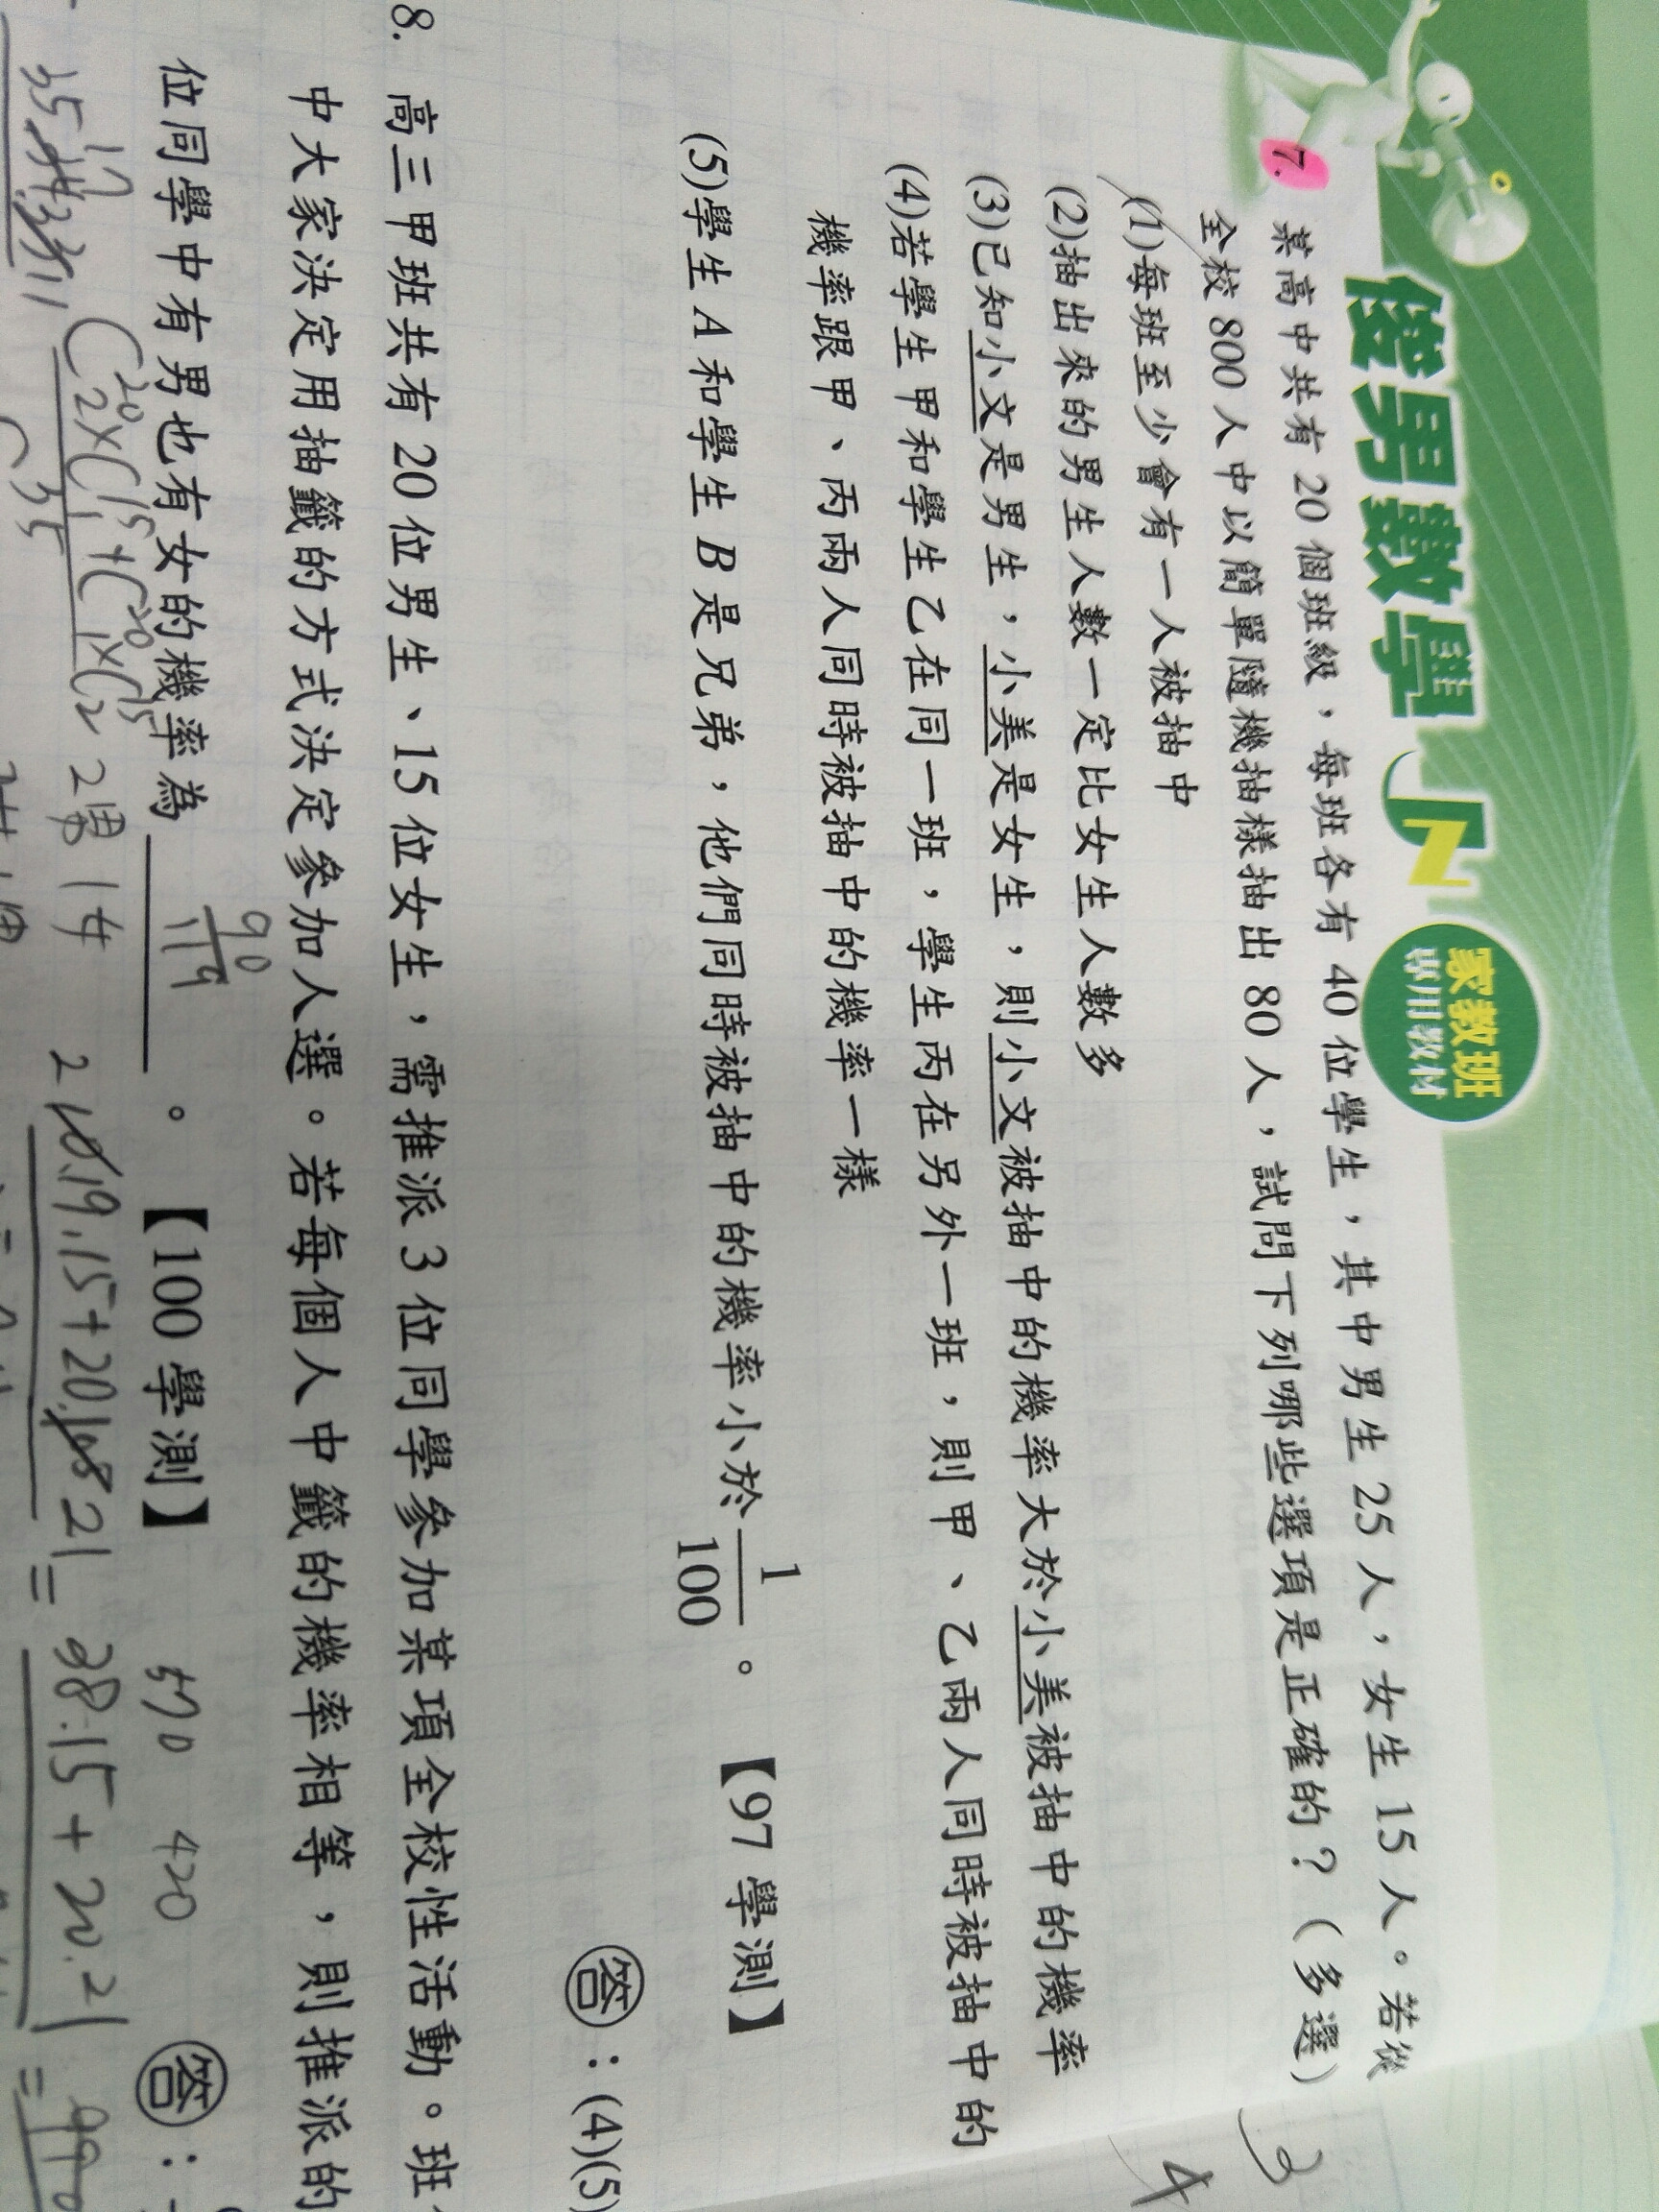 俊男數學
家教班
專用教材
7. 某高中共有 20 個班級,每班各有 40 位學生,其中男生 25 人,女生 15 人。若從
全校 800 人中以簡單隨機抽樣抽出 80 人,試問下列哪些選項是正確的?(多選)
(1)每班至少會有一人被抽中
(2)抽出來的男生人數一定比女生人數多
(3)已知小文是男生,小美是女生,則小文被抽中的機率大於小美被抽中的機率
(4)若學生甲和學生乙在同一班,學生丙在另外一班,則甲、乙兩人同時被抽中的
機率跟甲、丙兩人同時被抽中的機率一樣
(5)學生 A 和學生 B 是兄弟,他們同時被抽中的機率小於 1/100。 【97 學測】
答:(4)(5)
8. 高三甲班共有 20 位男生、15 位女生,需推派 3 位同學參加某項全校性活動。班
中大家決定用抽籤的方式決定參加人選。若每個人中籤的機率相等,則推派的
位同學中有男也有女的機率為 90/119 。 【100 學測】 答:
570 420
2男1女